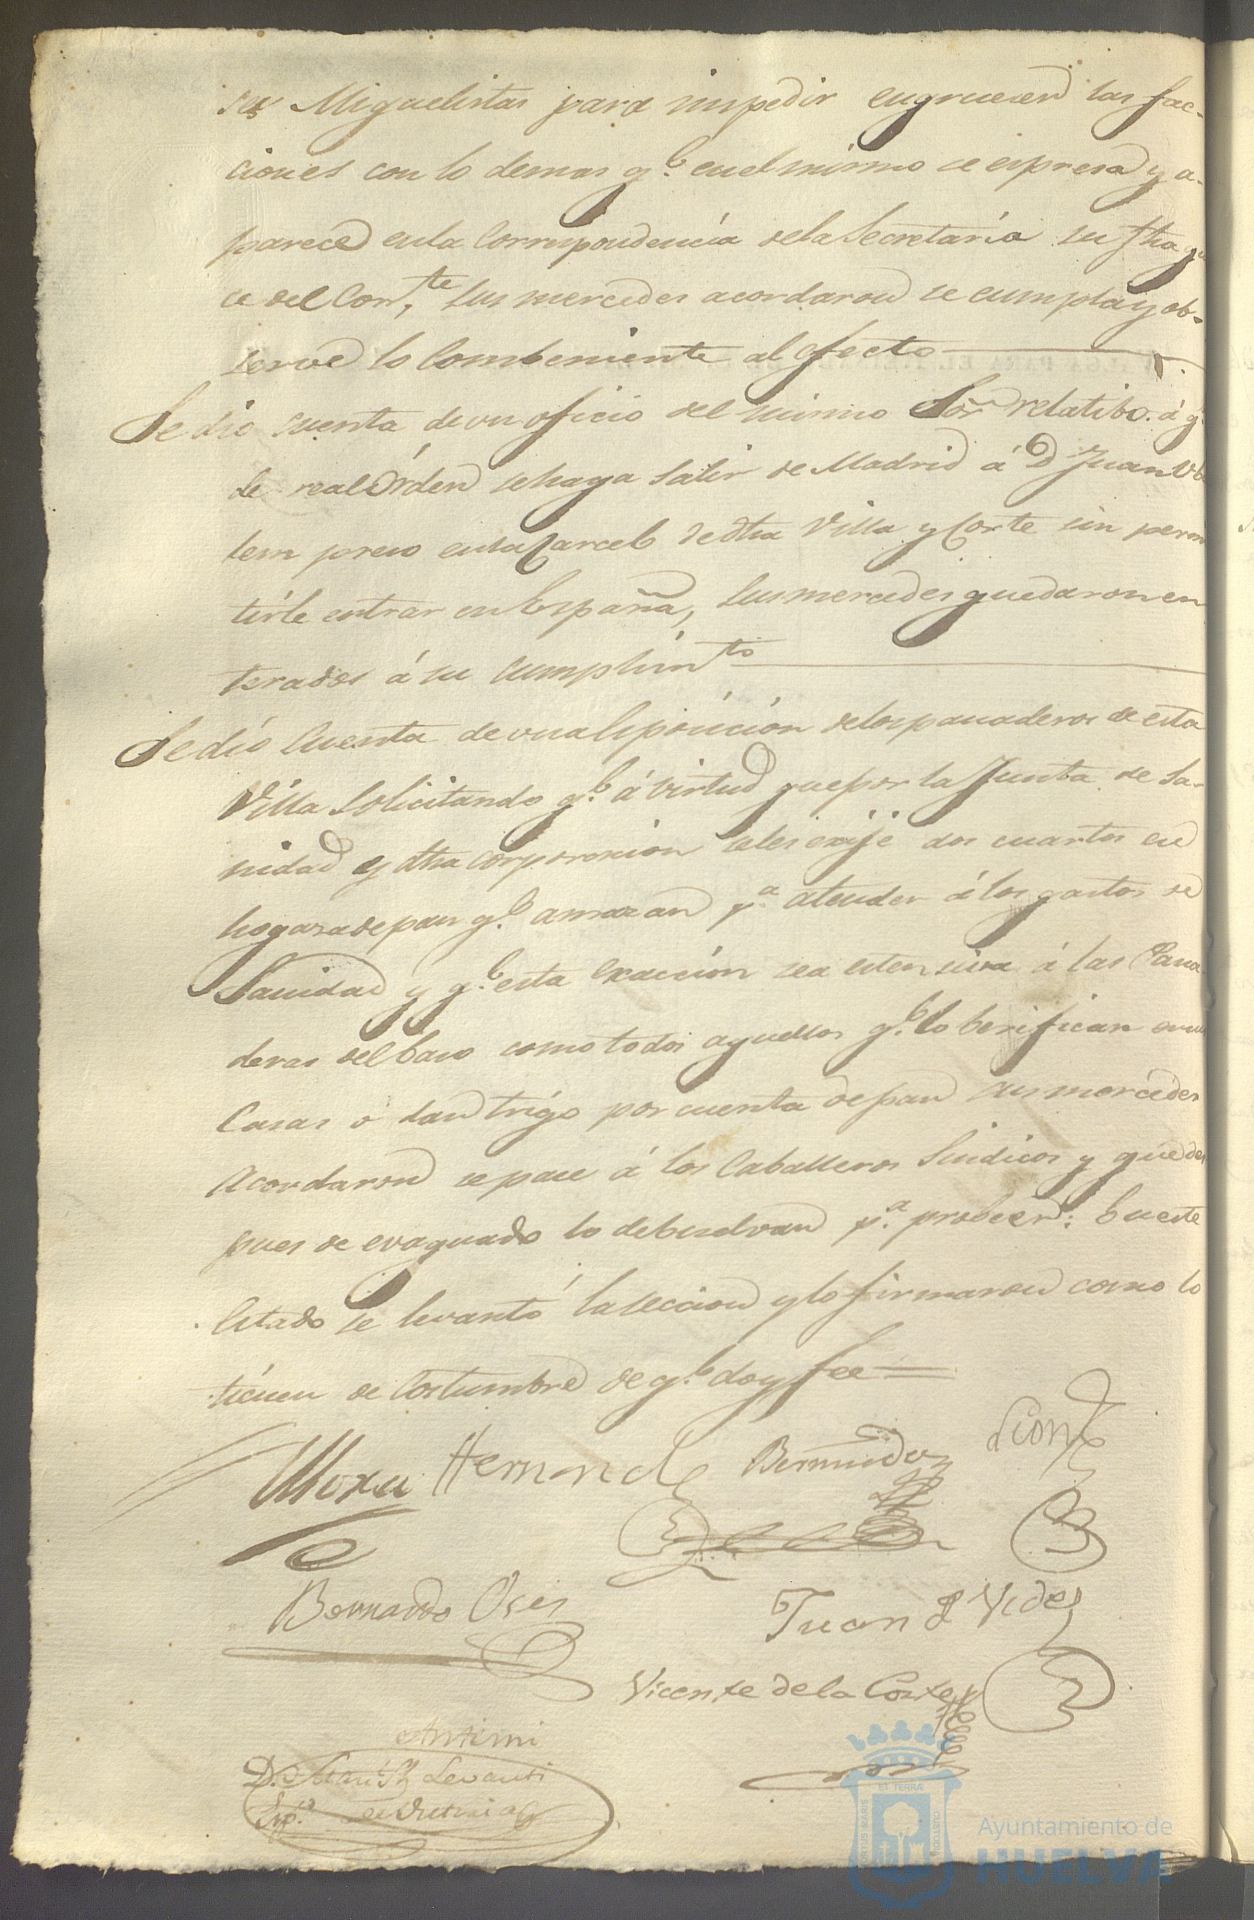 sus Miguelistas para impedir engruecen las fac-
ciones con lo demas q.e en el mismo se espresa y a-
parece en la Correspondencia de la Secretaría su fha
ce del Corr.te sus mercedes acordaron se cumpla y ob-
serve lo Combeniente al efecto
Se dio cuenta de un oficio del mismo Sor relatibo á q
de real Orden se haga Salir de Madrid á D Juan
tem preso en la Carcel de dha Villa y Corte sin permi
tirle entrar en España, sus mercedes quedaron en
terados á su cumplim.to
Se dió Cuenta de una Esposición de los panaderos de esta
Villa Solicitando q.e á virtud que por la Junta de Sa-
nidad y dha corporacion se les exije dos cuartos en
hogaza de pan q.e amazan p.a atender á los gastos de
Sanidad y q.e esta exacción sea estensiva á las Pana
deras del baso como todos aquellos q.e lo berifican en sus
Casas o dan trigo por cuenta de pan sus mercedes
Acordaron se pase á los Caballeros Sindicos y que des
pues de evaquado lo debuelvan p.a probeer: En este
Estado se levantó la seccion y lo firmaron como lo
tienen de Costumbre de q.e doy fee
Mora Hernand Bermudez
Bernardo Osés
Juan J Vides
Vicente de la Corte
Antemi
D. Levanti
Ayuntamiento de
HUELVA
ET TERRA
PORTUS MARIS
CUSTODIA